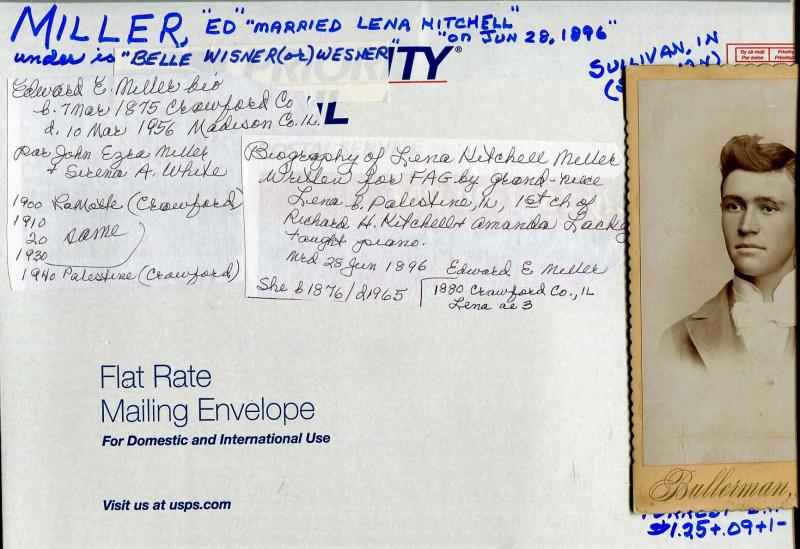 MILLER, "ED" "MARRIED LENA KITCHELL" "on JUN 28, 1896"
under is "BELLE WISNER (or) WESNER"
SULLIVAN, IN
PRIORITY®
By air mail
Par avion
Priority
Prioritai
Edward E. Miller bio
b. 7 Mar 1875 Crawford Co
d. 10 Mar 1956 Madison Co. IL.
par John Ezra Miller
+ Serena A. White
1900 LaMotte (Crawford)
1910
20 same
1930
1940 Palestine (Crawford)
Biography of Lena Kitchell Miller
Written for FAG by grand-niece
Lena b. Palestine, IL, 1st ch of
Richard H. Kitchell + Amanda Lacky
taught piano.
Mrd 28 Jun 1896 Edward E Miller
She b 1876/d 1965
1880 Crawford Co., IL
Lena ae 3
Flat Rate
Mailing Envelope
For Domestic and International Use
Visit us at usps.com
Bullerman,
$1.25+.09+1-